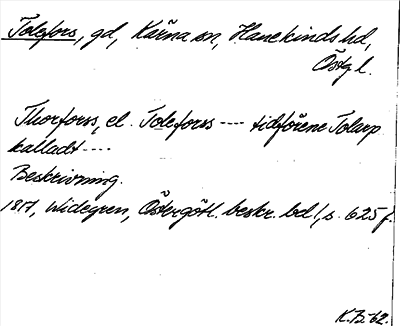 Tolefors, gd, Kärna sn, Hanekinds hd,
Östgl.
Thorforss, el. Toleforss ---- tidförene Tolarp
kalladt ----
Beskrivning.
1817, Widegren, Östergötl. beskr. bd 1, s. 625 f.
K.B. -62.